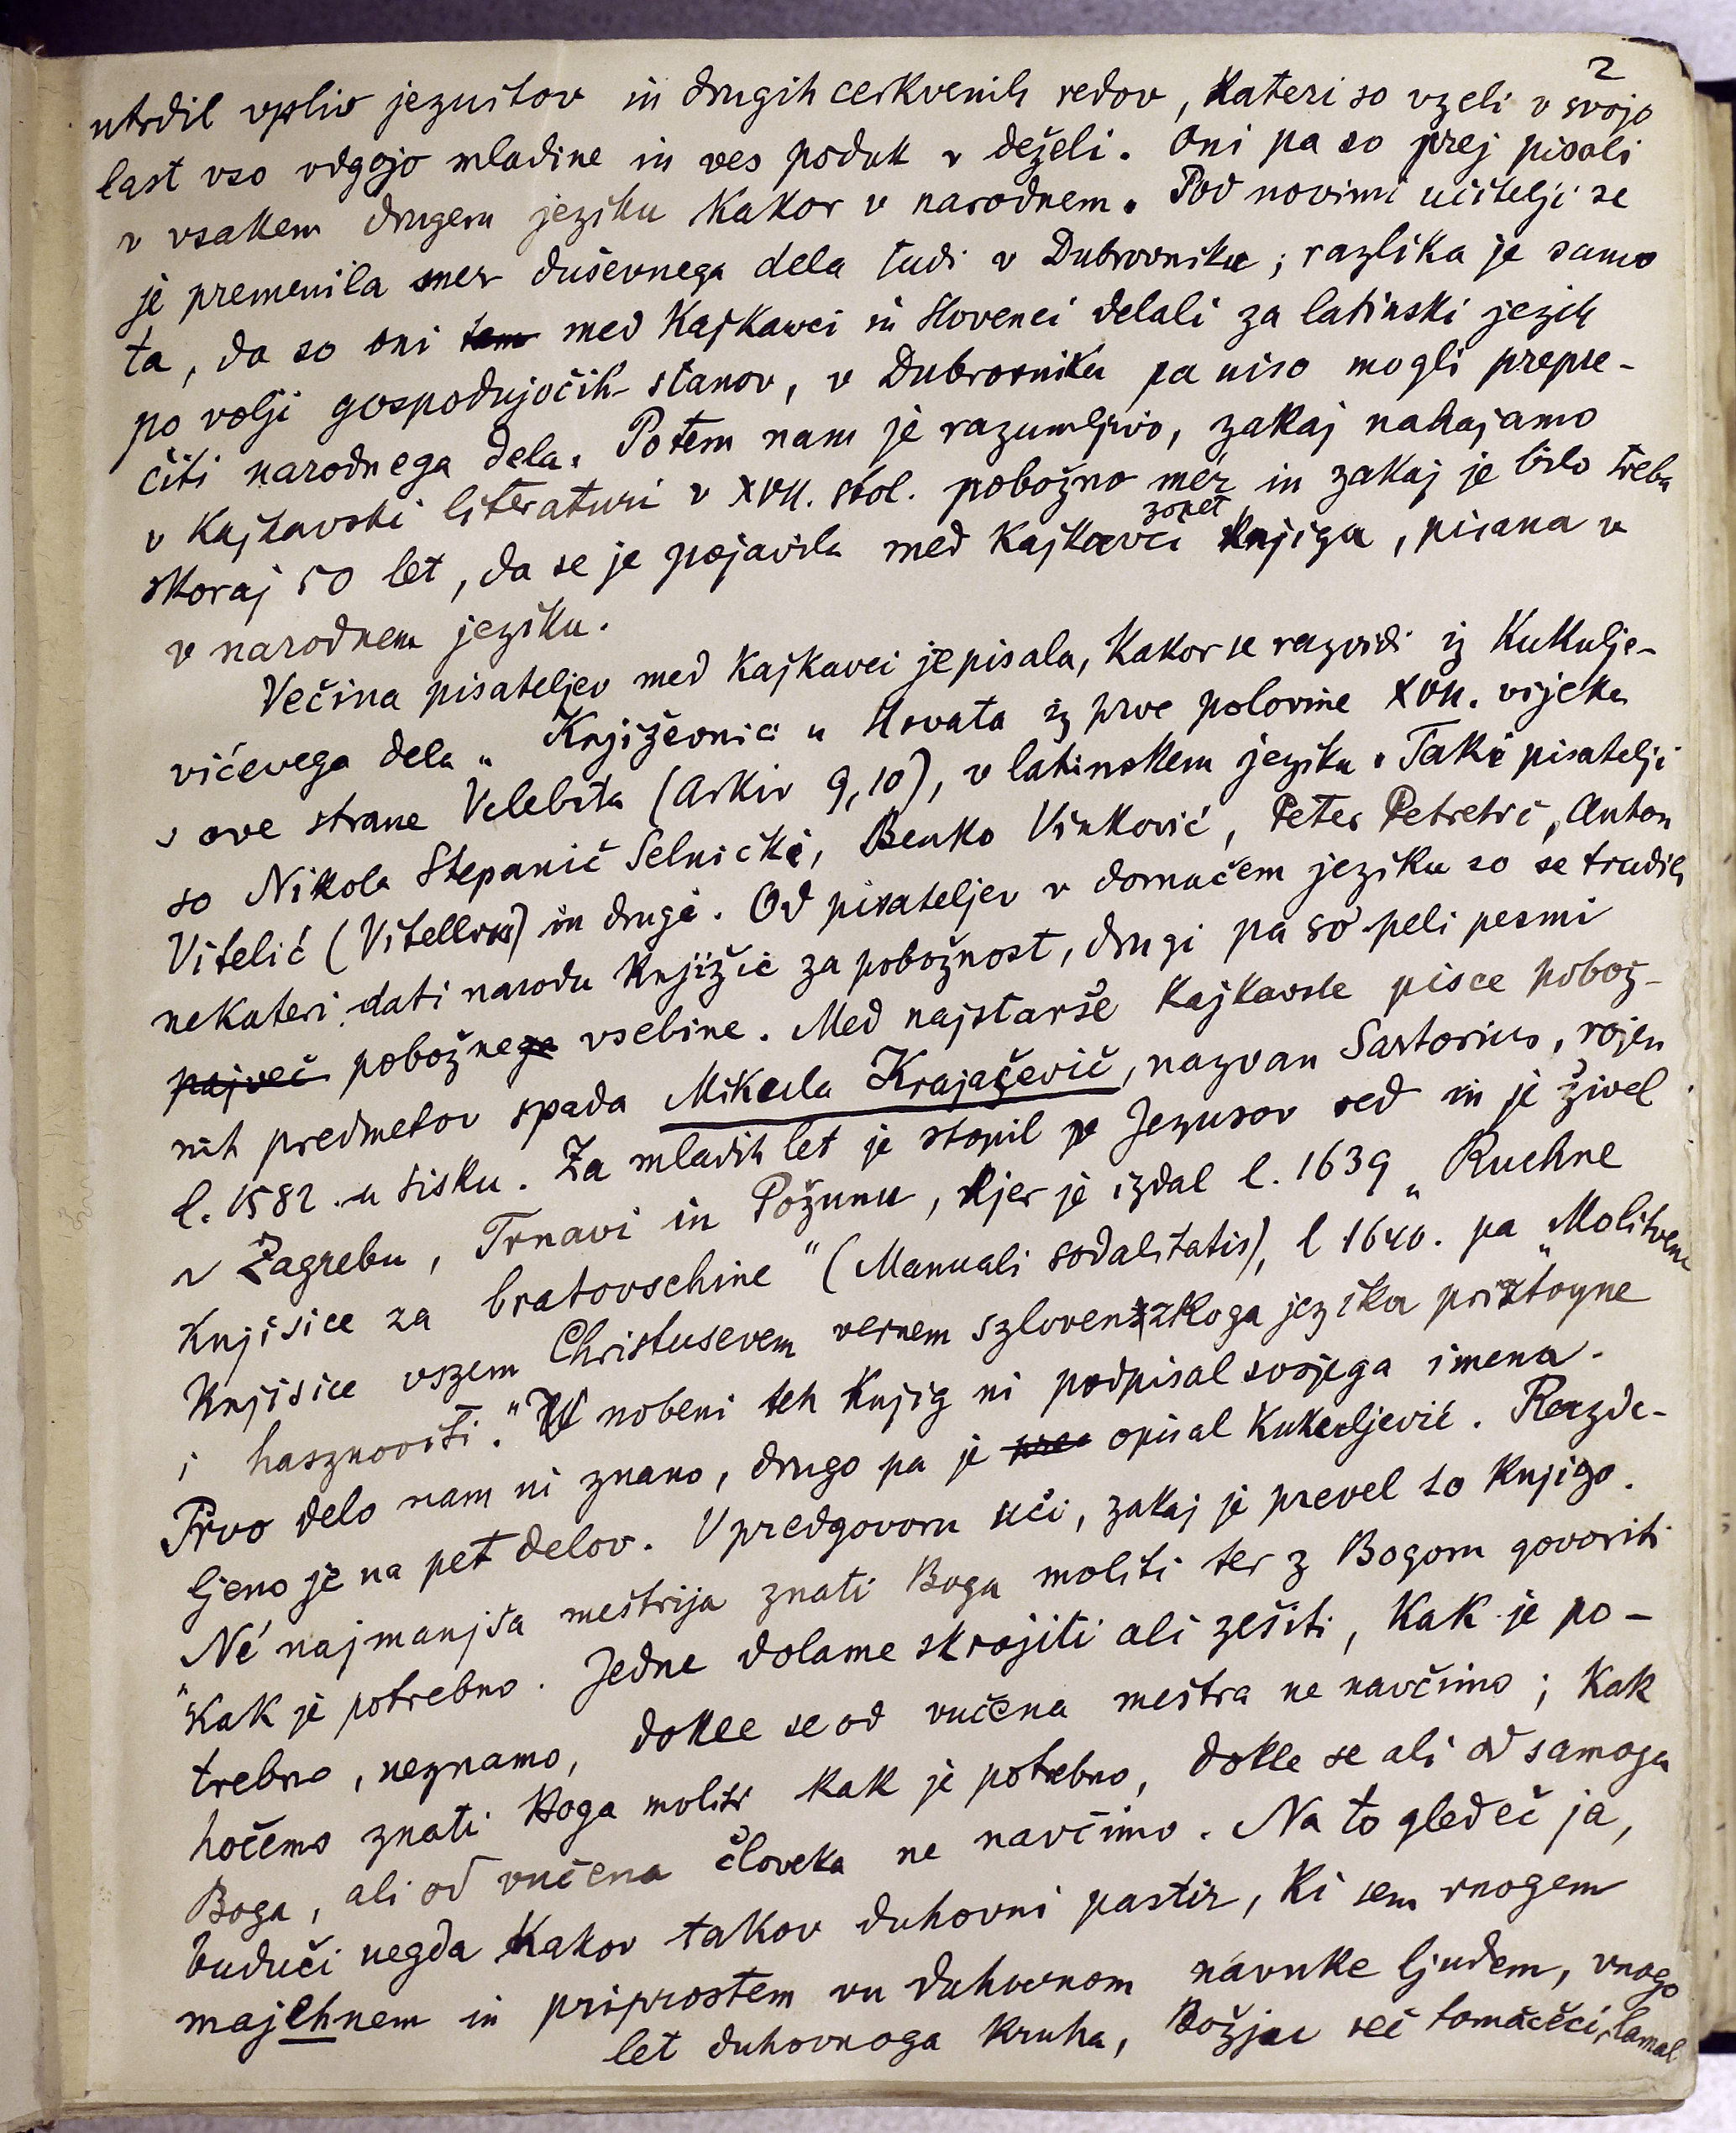 2
utrdil vpliv jezuitov in drugih cerkvenih redov, kateri so vzeli v svojo
last vso odgojo mladine in ves poduk v deželi. Oni pa so prej pisali
v vsakem drugem jeziku kakor v narodnem. Pod novimi učitelji se
je premenila mer duševnega dela tudi v Dubrovniku; razlika je samo
ta, da so oni tam med Kajkavci in Slovenci delali za latinski jezik
po volji gospodujočih stanov, v Dubrovniku pa niso mogli prepre-
čiti narodnega dela. Potem nam je razumljivo, zakaj nahajamo
v kajkavski literaturi v XVII. stol. pobožno mer in zakaj je bilo treba
skoraj 50 let, da se je pojavila med Kajkavci zopet knjiga, pisana v
v narodnem jeziku.
Večina pisateljev med Kajkavci je pisala, kakor se razvidi iz Kukulje-
vićevega dela „Književnici u Hrvata iz prve polovine XVII. vijeka
s ove strane Velebita (Arkiv 9,10), v latinskem jeziku. Taki pisatelji
so Nikola Stepanič Selnički, Benko Vinković, Peter Petretić, Anton
Vitelić (Vitellius) in drugi. Od pisateljev v domačem jeziku so se trudili
nekateri dati narodu knjižic za pobožnost, drugi pa so peli pesmi
največ pobožnega vsebine. Med najstarše kajkavske pisce pobož-
nih predmetov spada Mikula Krajačevič, nazvan Sartorius, rojen
l. 1582. u Sisku. Za mladih let je stopil v Jezusov red in je živel
v Zagrebu, Trnavi in Požunu, kjer je izdal l. 1639 „Ruchne
Knjisice za bratovschine" (Manuali sodalitatis), l 1640. pa „Molitvene
Knjisice vszem Christusevem vernem szlovenzkoga jezika prisztoyne
i hasznoviti." V nobeni teh knjig ni podpisal svojega imena.
Prvo delo nam ni znano, drugo pa je opisal Kukuljević. Razde-
ljeno je na pet delov. V predgovoru uči, zakaj je prevel to knjigo.
„Né najmanjša meštrija znati Boga moliti ter z Bogom govoriti
kak je potrebno. Jedne dolame skrojiti ali zešiti, kak je po-
trebno, neznamo, dokle se od vučena meštra ne navčimo; kak
hočemo znati Boga moliti kak je potrebno, dokle se ali od samoga
Boga, ali od vučena človeka ne navčimo. Na to gledeč ja,
buduči negda kakov takov duhovni pastir, ki sem vnogem
majehnem in priprostem vu duhovnom navuke ljudem, vnogo
let duhovnoga kruha, Božju reč tomačeči, lamal